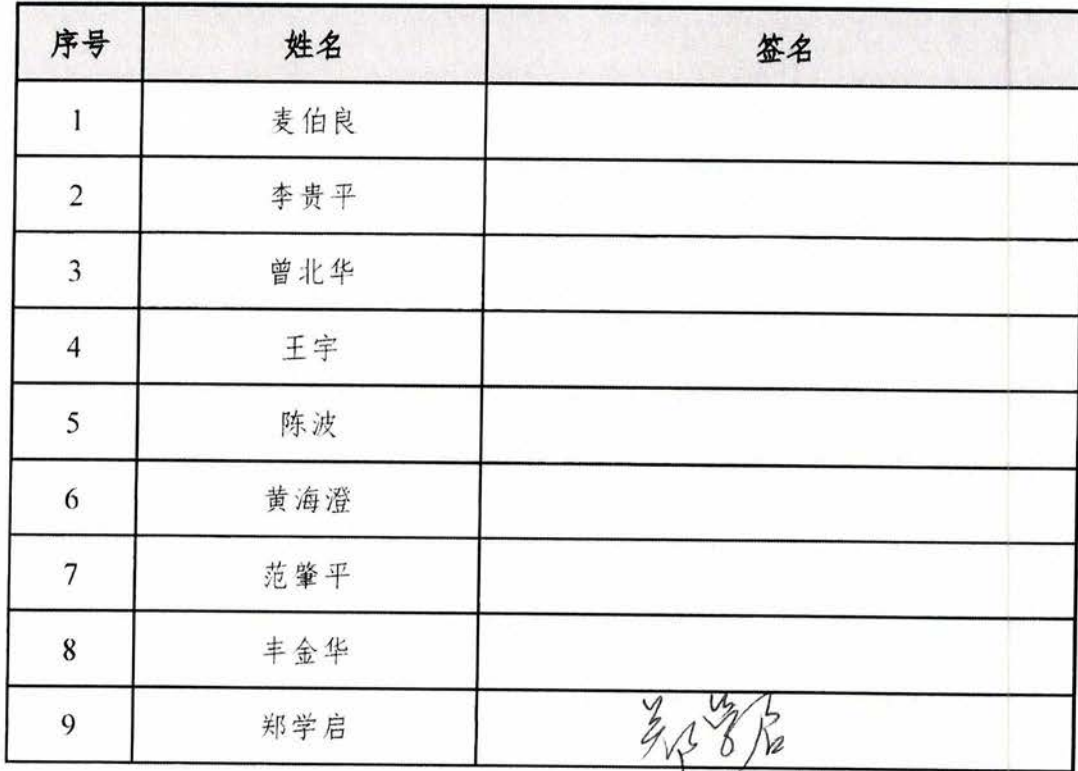 序号 姓名 签名
1 麦伯良
2 李贵平
3 曾北华
4 王宇
5 陈波
6 黄海澄
7 范肇平
8 丰金华
9 郑学启 郑学启